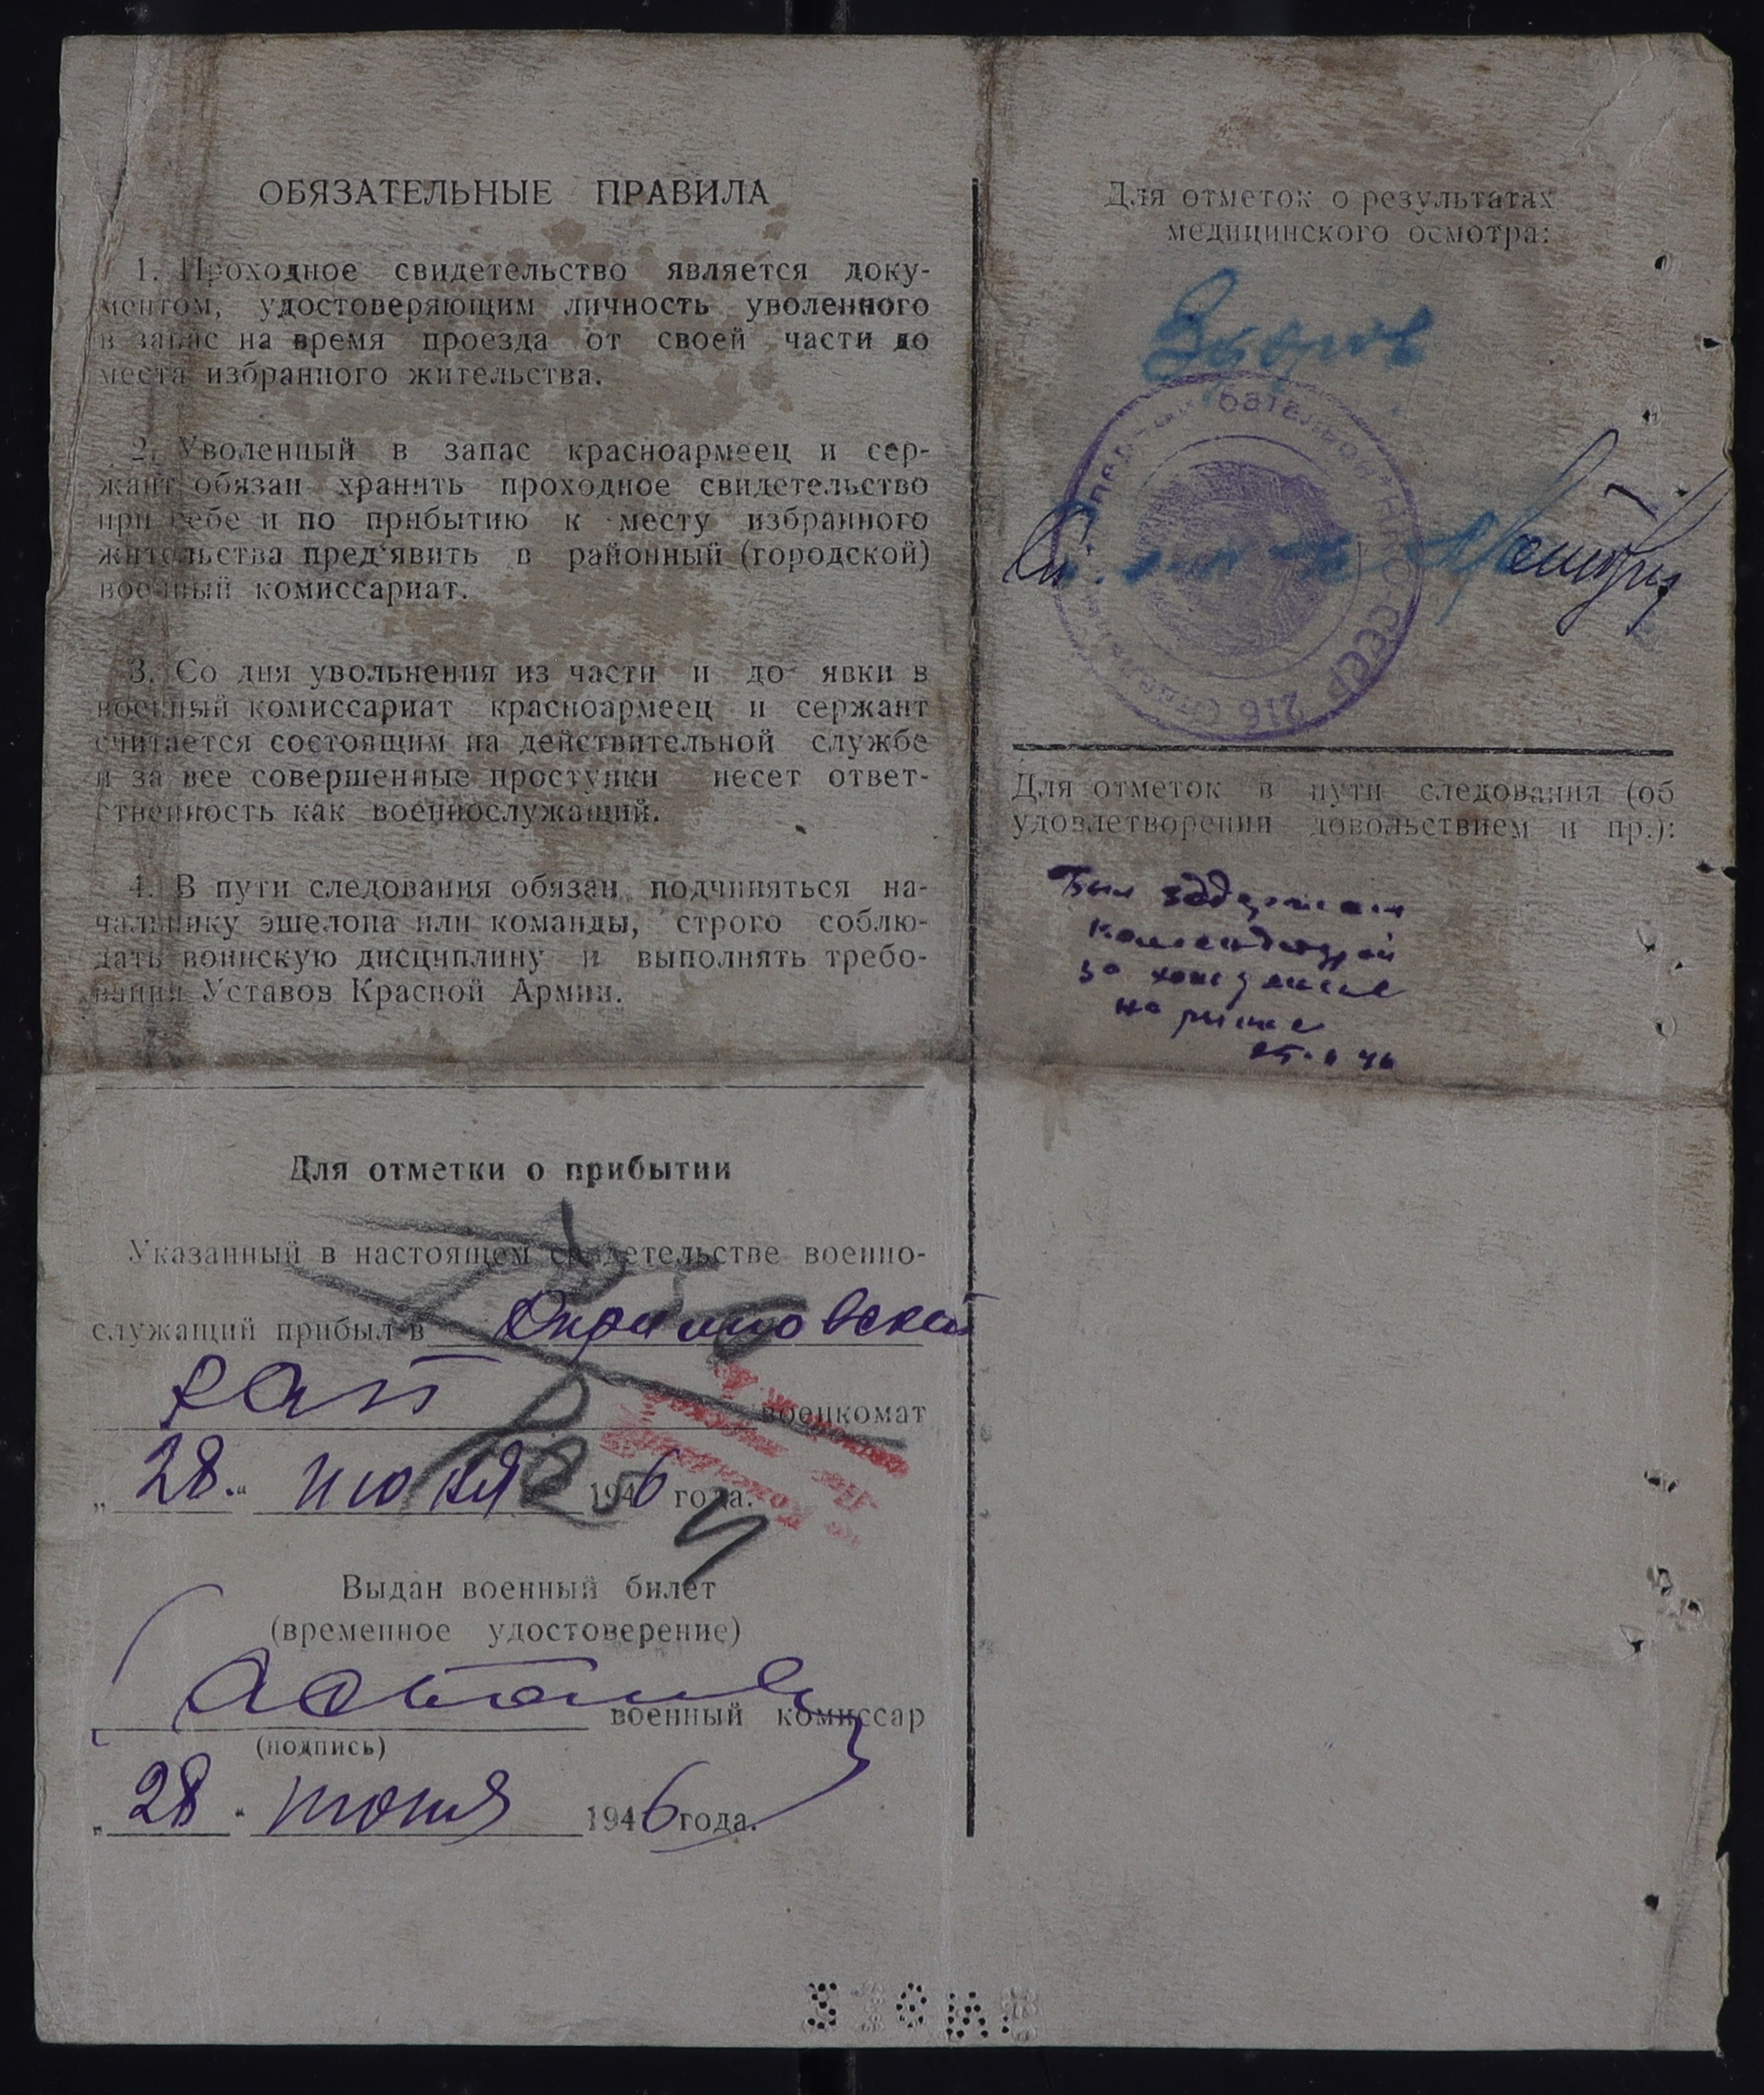 ОБЯЗАТЕЛЬНЫЕ ПРАВИЛА
1. Проходное свидетельство является доку-
ментом, удостоверяющим личность уволенного
в запас на время проезда от своей части до
места избранного жительства.
2. Уволенный в запас красноармеец и сер-
жант обязан хранить проходное свидетельство
при себе и по прибытию к месту избранного
жительства пред'явить в районный (городской)
военный комиссариат.
3. Со дня увольнения из части и до явки в
военный комиссариат красноармеец и сержант
считается состоящим на действительной службе
и за все совершенные проступки несет ответ-
ственность как военнослужащий.
4. В пути следования обязан подчиняться на-
чальнику эшелона или команды, строго соблю-
дать воинскую дисциплину и выполнять требо-
вания Уставов Красной Армии.
Для отметки о прибытии
Указанный в настоящем свидетельстве военно-
служащий прибыл в
военкомат
„28“ июня 1946 года.
Выдан военный билет
(временное удостоверение)
военный комиссар
(подпись)
„28“ июня 1946 года.
Для отметок о результатах
медицинского осмотра:
Здоров
батальон НКО СССР 216
Для отметок в пути следования (об
удовлетворении довольствием и пр.):
Был задержан
комендатурой
за хождение
на рынке